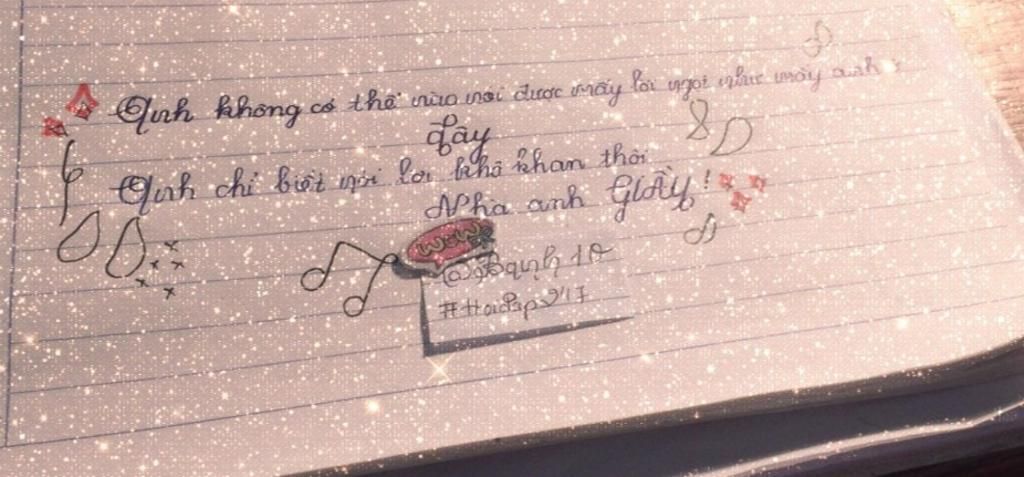 Anh không có thể nào nói được mấy lời ngọt như mấy anh
đây
Anh chỉ biết nói lời khô khan thôi
Nha anh GIẦY!
WOW
#Hoidap247